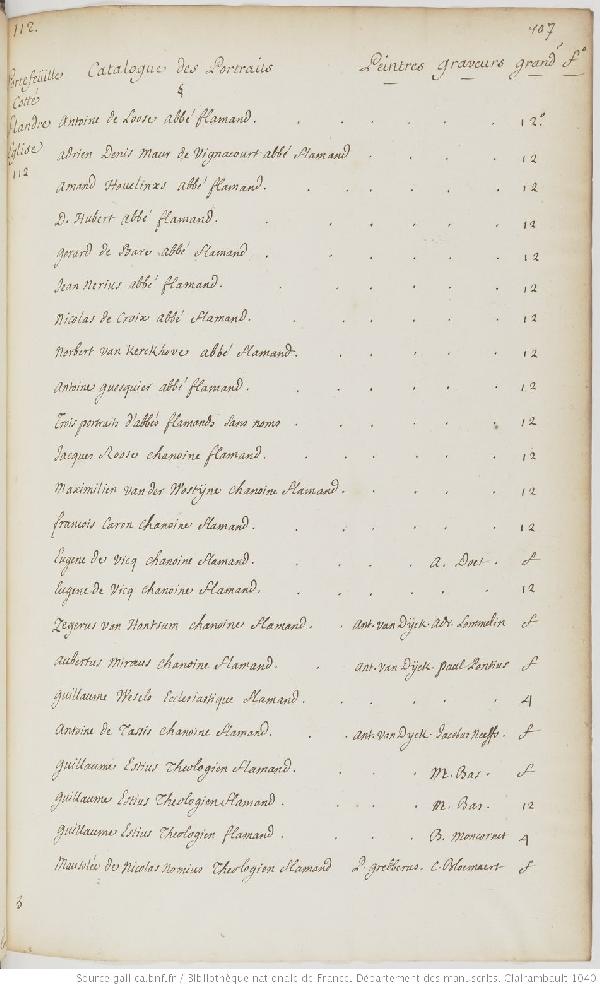 112. 407
Portefeüille Catalogue des Portraits Peintres graveurs grandr fo
Cotté
Flandre Antoine de Loose abbé flamand. 12°
Eglise adrien Denis Maur de Vignacourt abbé flamand 12
112 amand Hovelinxs abbé flamand. 12
D. Hubert abbé flamand. 12
gerard de Bare abbé flamand 12
Jean Nerius abbé flamand. 12
Nicolas de Croix abbé flamand. 12
Norbert van Kerckhove abbé flamand. 12
Antoine guesquier abbé flamand. 12
Trois portraits d'abbés flamands sans noms 12
Jacques Roose chanoine flamand. 12
Maximilien van der Wostijne chanoine flamand. 12
françois Caron chanoine flamand. 12
Eugene de Vicq chanoine flamand. A. Doet. f
Eugene de Vicq chanoine flamand. 12
Zegerus von Hontsum chanoine flamand. Ant. van Dijck. Adr. Lommelin f
Aubertus Miræus chanoine flamand. Ant. van Dijck. paul Pontius f
guillaume Weselo Eclesiastique flamand. 4
Antoine de Tassis chanoine flamand. Ant. van Dyck. Jacobus neeffs. f
guillaume Estius Theologien flamand. M. Bas. f
guillaume Estius Theologien flamand. M. Bas. 12
guillaume Estius Theologien flamand. B. Moncornet 4
Mausolée de Nicolas Nomius Theologien flamand P. grebberus. C. Bloemaert f
Source gallica.bnf.fr / Bibliothèque nationale de France. Département des manuscrits. Clairambault 1040